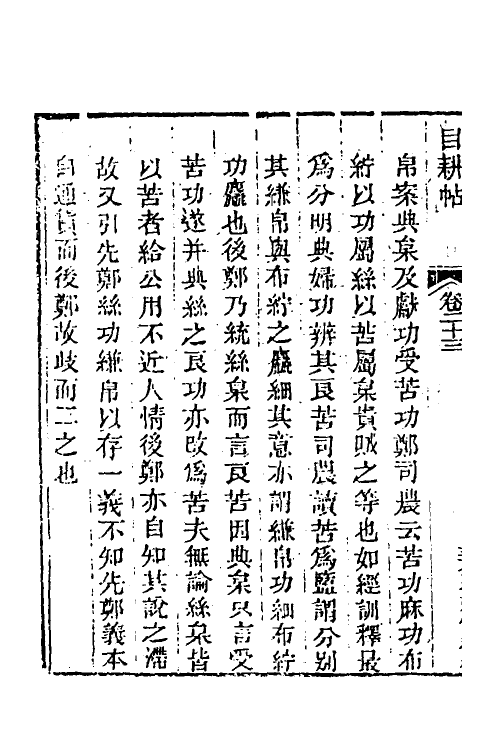 目耕帖
卷二十三
帛案典枲及獻功受苦功鄭司農云苦功麻功布
紵以功屬絲以苦屬枲貴賤之等也如經訓釋最
爲分明典婦功辨其良苦司農讀苦爲盬謂分别
其縑帛與布紵之麤細其意亦謂縑帛功細布紵
功麤也後鄭乃統絲枲而言良苦因典枲只言受
苦功遂并典絲之良功亦改爲苦夫無論絲枲皆
以苦者給公用不近人情後鄭亦自知其說之滯
故又引先鄭絲功縑帛以存一義不知先鄭義本
自通貫而後鄭故歧而二之也